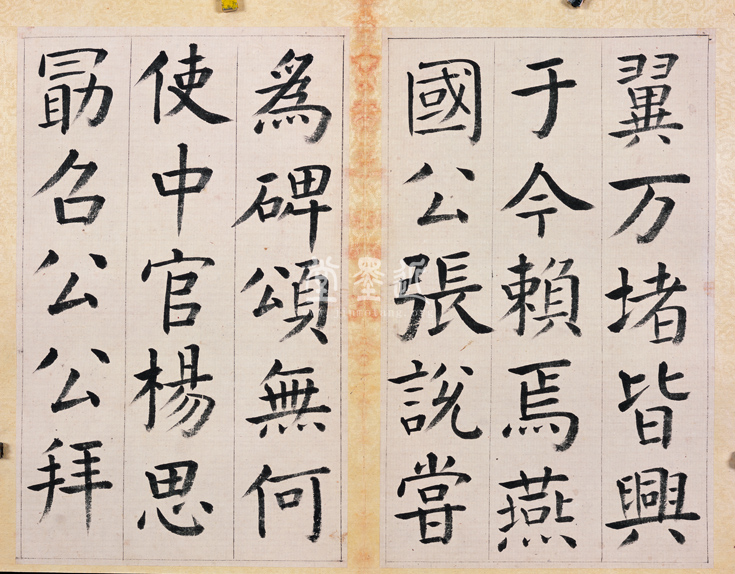 翼万堵皆興
于今賴焉燕
國公張說嘗
為碑頌無何
使中官楊思
勗召公公拜